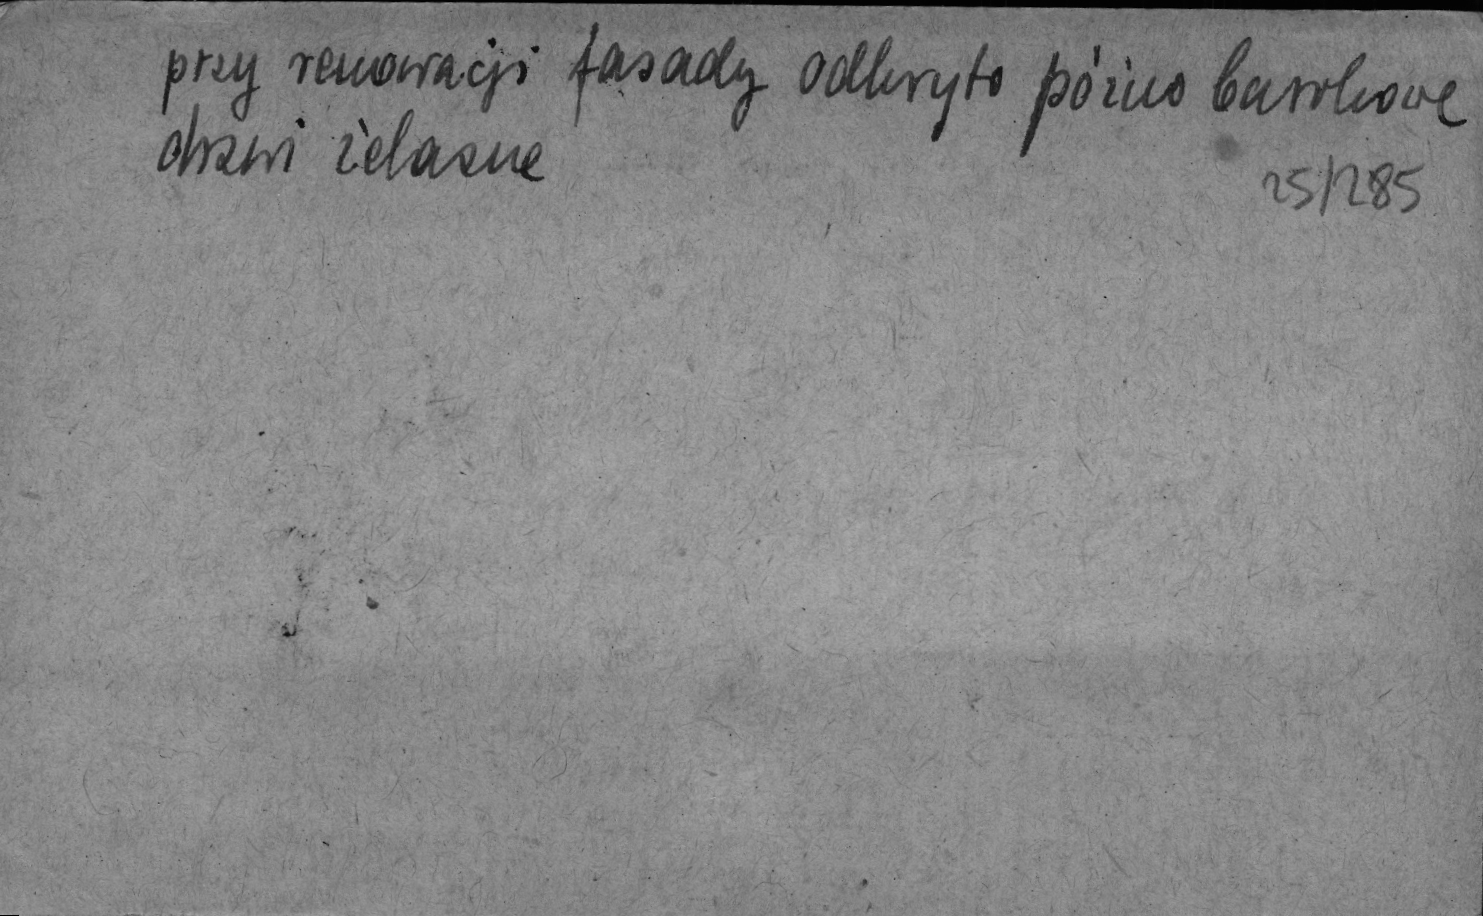 przy renowacji fasady odkryto późno barokowe
drzwi żelazne
25/285